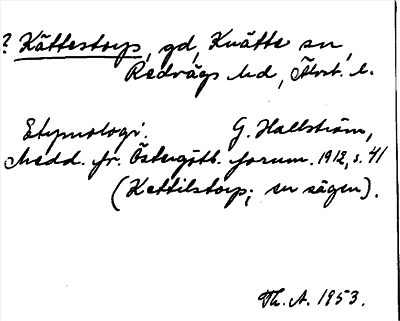 ? Kättestorp, gd, Knätte sn,
Redvägs hd, Älvsb. l.
Etymologi. G. Hallström,
Medd. fr. Östergötl. fornm. 1912, s. 41
(Kettilstorp; en sägen).
Th. A. 1953.